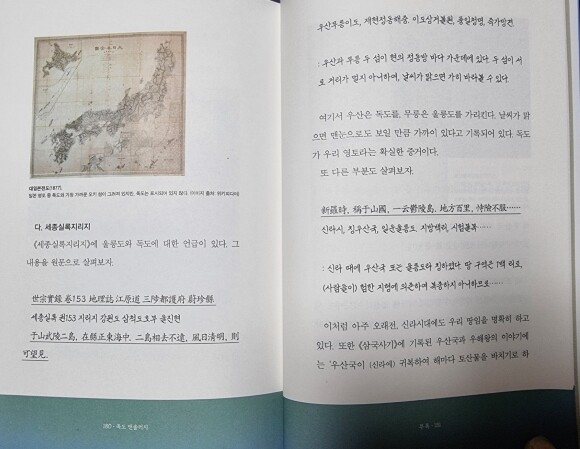 대일본전도(1877).
일본 영토 중 독도와 가장 가까운 오키 섬이 그려져 있지만, 독도는 표시되어 있지 않다. (이미지 출처: 위키피디아)
다. 세종실록지리지
《세종실록지리지》에 울릉도와 독도에 대한 언급이 있다. 그
내용을 원문으로 살펴보자.
世宗實錄 卷153 地理誌 江原道 三陟都護府 蔚珍縣
세종실록 권153 지리지 강원도 삼척도호부 울진현
于山武陵二島, 在縣正東海中, 二島相去不遠, 風日淸明, 則
可望見.
180 · 독도
우산무릉이도, 재현정동해중, 이도상거불원, 풍일청명, 즉가망견.
: 우산과 무릉 두 섬이 현의 정동방 바다 가운데에 있다. 두 섬이 서
로 거리가 멀지 아니하여, 날씨가 맑으면 가히 바라볼 수 있다.
여기서 우산은 독도를, 무릉은 울릉도를 가리킨다. 날씨가 맑
으면 맨눈으로도 보일 만큼 가까이 있다고 기록되어 있다. 독도
가 우리 영토라는 확실한 증거이다.
또 다른 부분도 살펴보자.
新羅時, 稱于山國, 一云鬱陵島, 地方百里, 恃險不服……
신라시, 칭우산국, 일운울릉도, 지방백리, 시험불복……
: 신라 때에 우산국 또는 울릉도라 칭하였다. 땅 구역은 1백 리요,
(사람들이) 험한 지형에 의존하여 복종하지 아니하므로……
이처럼 아주 오래전, 신라시대에도 우리 땅임을 명확히 하고
있다. 또한 《삼국사기》에 기록된 우산국과 우해왕의 이야기에
는 '우산국이 (신라에) 귀복하여 해마다 토산물을 바치기로 하
부록 ·